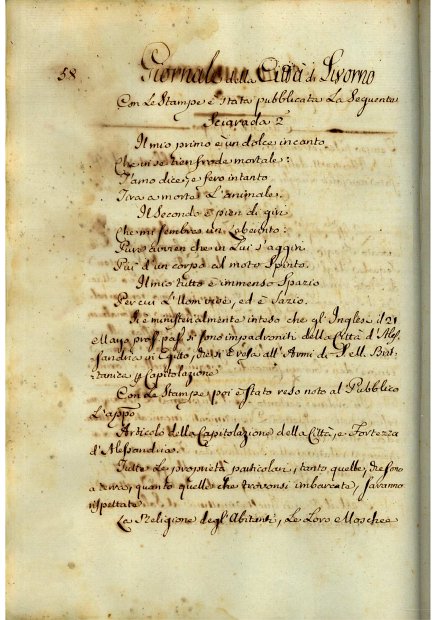 58
Giornale della Città di Livorno
Con Le Stampe è stata pubblicata La Seguente
Sciarada 2
Il mio primo è un dolce incanto
Che in se tien frode mortale:
T'amo dice, e fero intanto
Tira a morte L'animale.
Il Secondo è pien di giri
Che mi sembra un Laberinto:
Pure avvien che in Lui s'aggiri
Più d'un corpo al moto Spinto.
Il mio tutto è immenso Spazio
Per cui L'Uom vive, ed è Sazio.
Si è ministerialmente inteso che gl'Inglesi il 21
Si sono impadroniti della Città d'Ales
sandria in Egitto, che si è resa all'Armi di S. M. Brit
tanica p Capitolazione
Con Le Stampe poi è stato reso noto al Pubblico
L'appo
Articolo della Capitolazione della Città, e Fortezza
d'Alessandria.
Tutte Le proprietà particolari, tanto quelle, che sono
a terra, quanto quelle che trovansi imbarcate, saranno
rispettate
La Religione degl'Abitanti, Le Loro Moschee